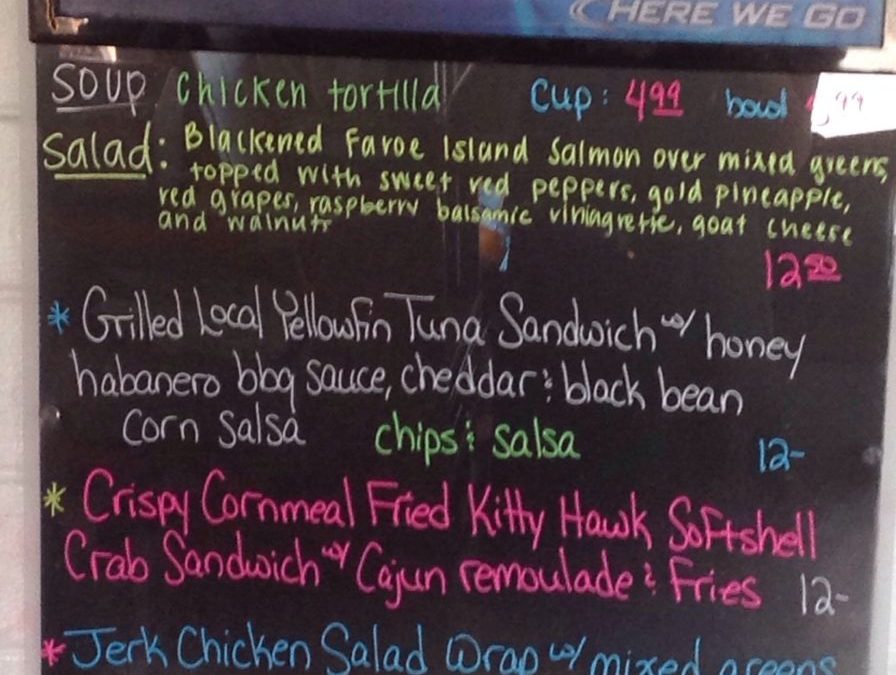 HERE WE GO
SOUP: Chicken tortilla cup: 4.99 bowl 5.99
Salad: Blackened Faroe Island Salmon over mixed greens,
topped with sweet red peppers, gold pineapple,
red grapes, raspberry balsamic viniagrette, goat cheese
and walnuts
12.50
* Grilled Local Yellowfin Tuna Sandwich w/ honey
habanero bbq sauce, cheddar & black bean
corn salsa chips & salsa 12-
* Crispy Cornmeal Fried Kitty Hawk Softshell
Crab Sandwich w/ Cajun remoulade & Fries 12-
* Jerk Chicken Salad Wrap w/ mixed greens